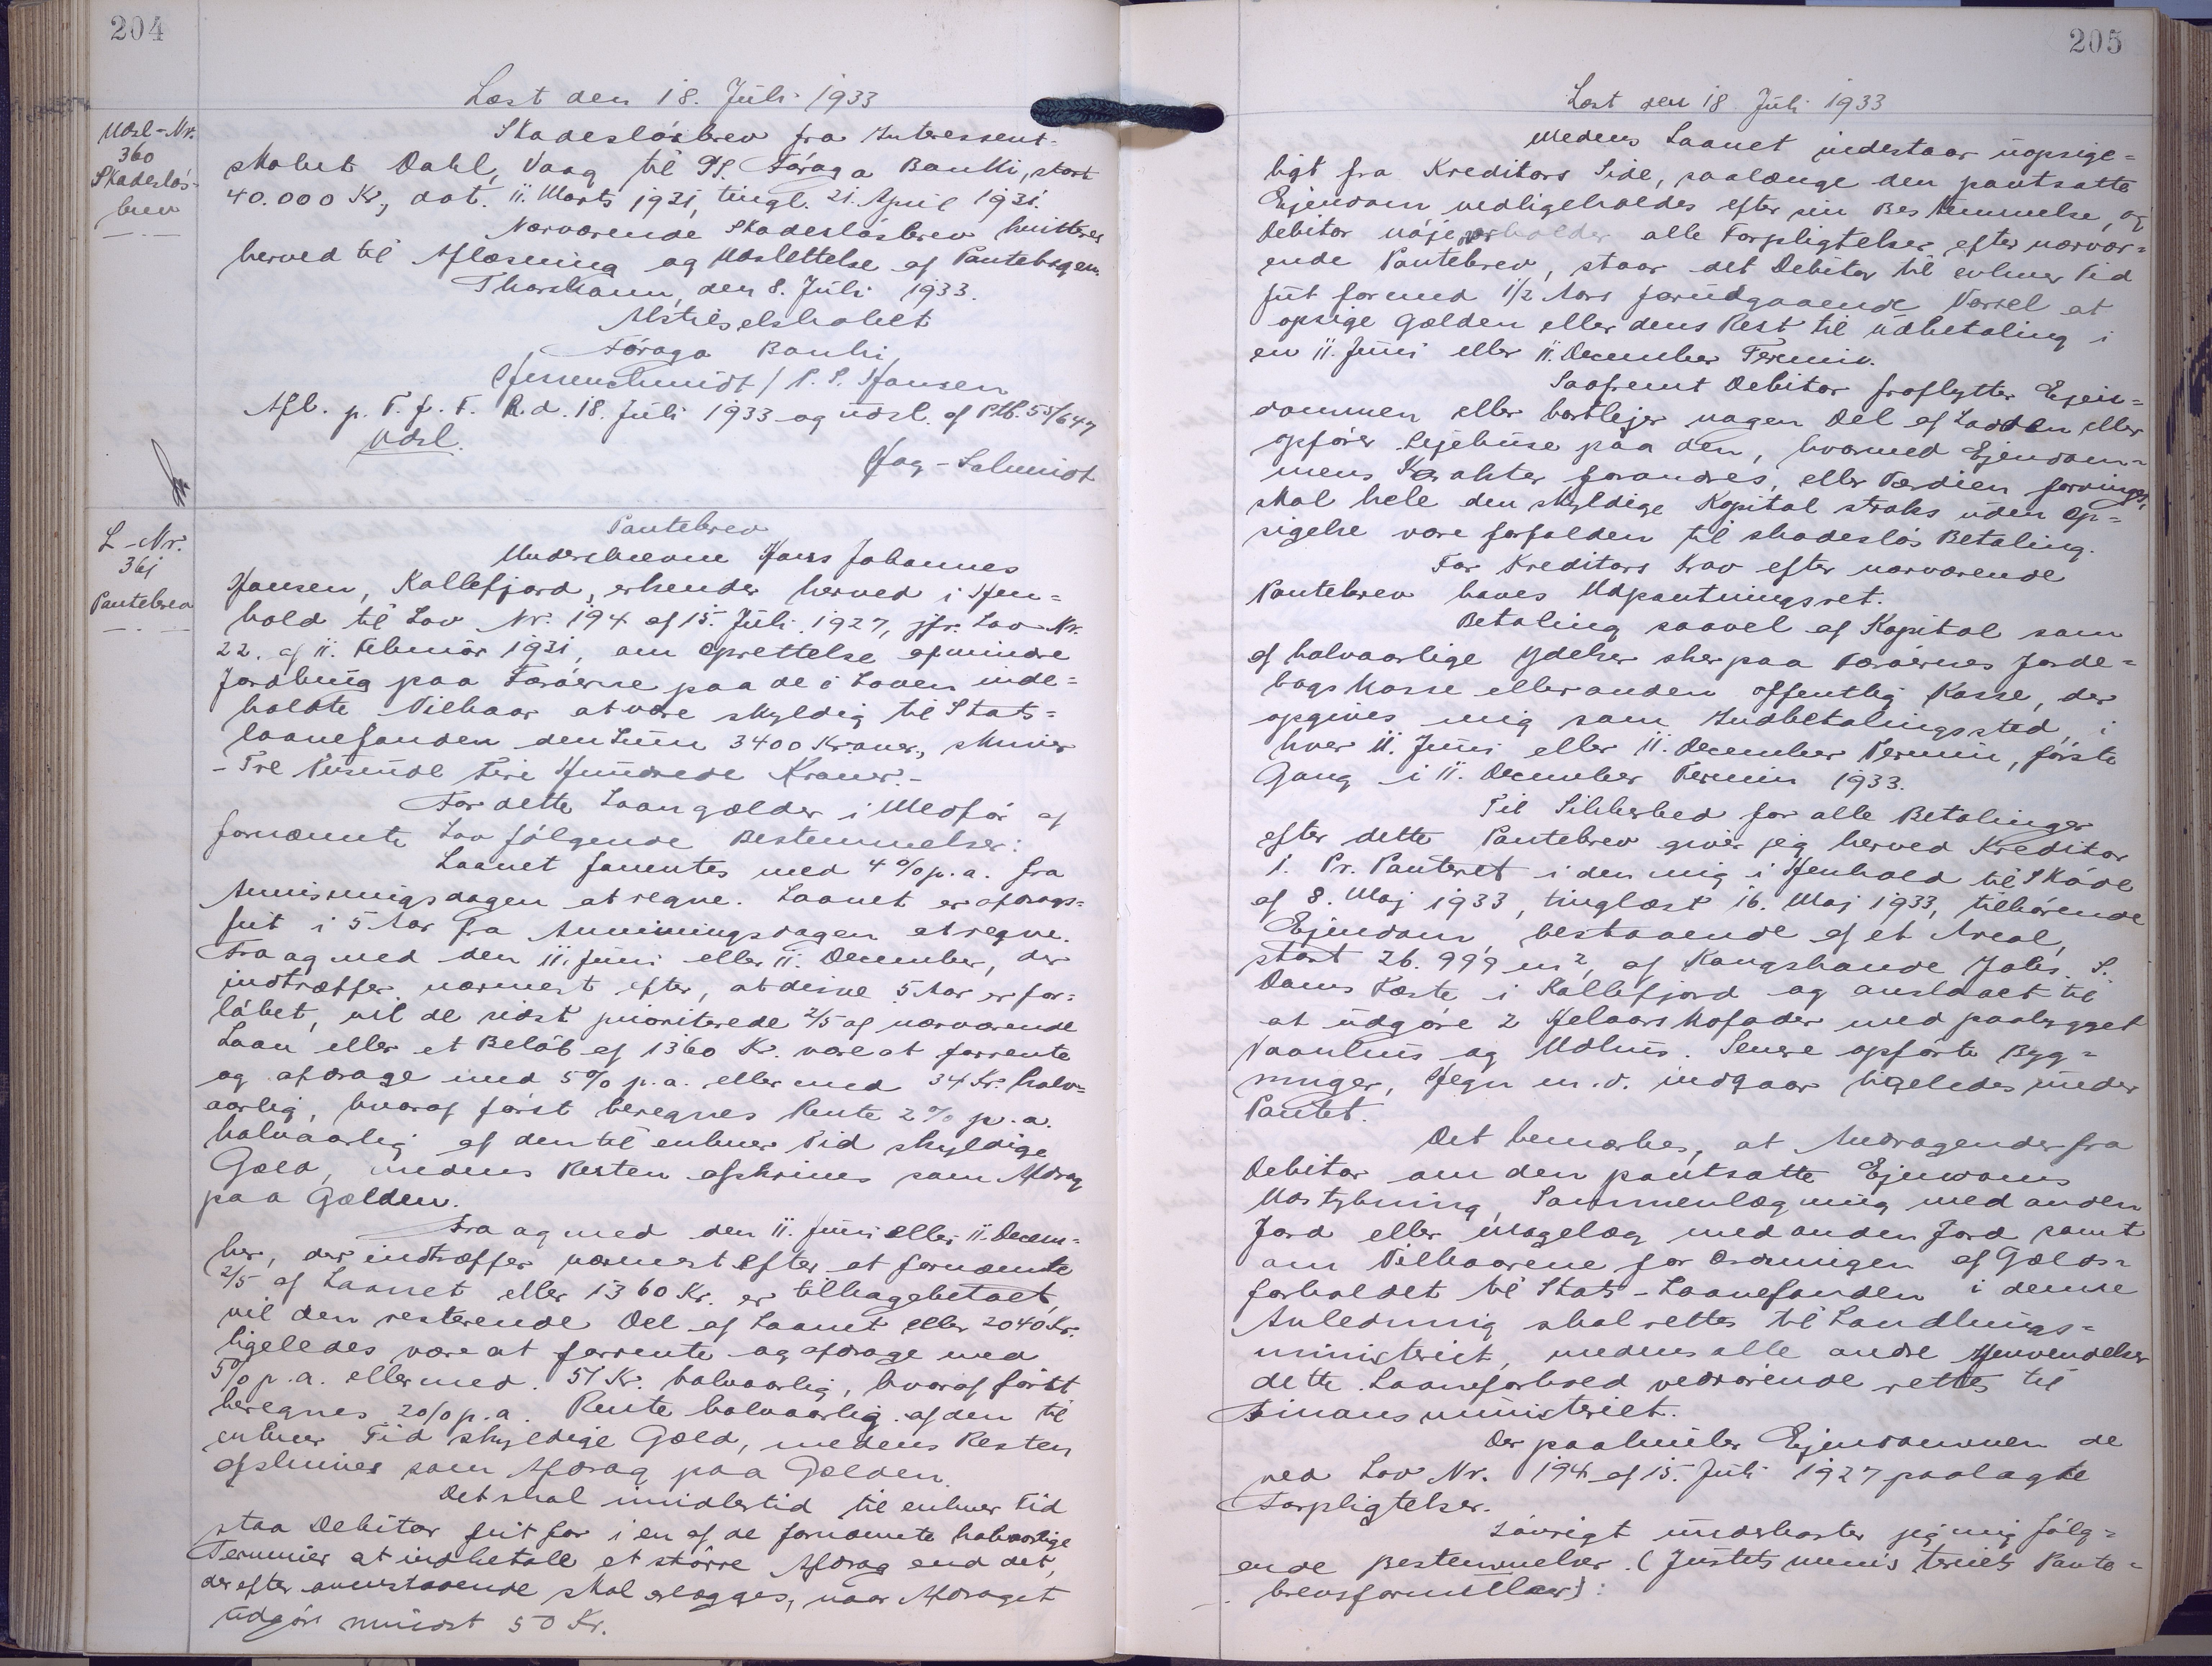 204
Læst den 18. Juli 1933
Udsl-Nr.
360
Skadesløs-
brev
Skadesløsbrev fra Interessent-
skabet Dahl, Vaag til P/F. Føroya Banki, stort
40.000 Kr., dat. 11. Marts 1931, tingl. 21. April 1931.
Nærværende Skadesløsbrev kvitteres
herved til Aflæsning og Udslettelse af Pantebogen.
Thorshavn, den 8. Juli 1933.
Aktieselskabet
Føroya Banki,
P. P. Hansen
Afl. p. T. f. F. R.d. 18. Juli 1933 og udsl. af Ptb. 55/647
Udsl.
L-Nr.
361
Pantebrev
Pantebrev
Underskrevne Hans Johannes
Hansen, Kollefjord, erkender herved i Hen=
hold til Lov Nr. 194 af 15. Juli 1927, jfr. Lov Nr.
22. af 11. Februar 1931, om Oprettelse af mindre
Jordbrug paa Færøerne paa de i Loven inde=
holdte Vilkaar at være skyldig til Stats=
laanefonden den Sum 3400 Kroner, skriver
- Tre Tusinde Fire Hundrede Kroner. -
For dette Laan gælder i Medfør af
fornævnte Lov følgende Bestemmelser:
Laanet forrentes med 4 % p.a. fra
Anvisningsdagen at regne. Laanet er afdrags=
frit i 5 Aar fra Anvisningsdagen at regne.
Fra og med den 11. Juni eller 11. December, der
indtræffer nærmest efter, at disse 5 Aar er for=
løbet, vil de sidst prioriterede 2/5 af nærværende
Laan eller et Beløb af 1360 Kr. være at forrente
og afdrage med 5 % p.a. eller med 34 Kr. halv=
aarlig, hvoraf først beregnes Rente 2 % p.a.
halvaarlig af den til enhver Tid skyldige
Gæld, medens Resten afskrives som Afdrag
paa Gælden.
Fra og med den 11. Juni eller 11. Decem=
ber, der indtræffer nærmest efter at fornævnte
2/5 af Laanet eller 1360 Kr. er tilbagebetalt,
vil den resterende Del af Laanet eller 2040 Kr.
ligeledes være at forrente og afdrage med
5 % p.a. eller med 51 Kr. halvaarlig, hvoraf først
beregnes 2 % p.a. Rente halvaarlig af den til
enhver Tid skyldige Gæld, medens Resten
afskrives som Afdrag paa Gælden.
Det skal imidlertid til enhver Tid
staa Debitor frit for i en af de fornævnte halvaarlige
Terminer at indbetale et større Afdrag end det,
der efter ovenstaaende skal erlægges, naar Afdraget
udgør mindst 50 Kr.
205
Læst den 18 Juli 1933
Medens Laanet indestaar uopsige=
ligt fra Kreditors Side, saalænge den pantsatte
Ejendom vedligeholdes efter sin Bestemmelse, og
Debitor nøje overholder alle Forpligtelser efter nærvær=
ende Pantebrev, staar det Debitor til enhver Tid
frit for med 1/2 Aars forudgaaende Varsel at
opsige Gælden eller dens Rest til Udbetaling i
en 11. Juni eller 11. December Termin.
Saafremt Debitor fraflytter Ejen=
dommen eller bortlejer nogen Del af Lodden eller
opfører Lejehuse paa den, hvormed Ejendom=
mens Karakter forandres, eller Værdien forringes,
skal hele den skyldige Kapital straks uden Op=
sigelse være forfalden til skadesløs Betaling.
For Kreditors Krav efter nærværende
Pantebrev haves Udpantningsret.
Betaling saavel af Kapital som
af halvaarlige Ydelser sker paa Færøernes Jorde=
bogs Kasse eller anden offentlig Kasse, der
opgives mig som Indbetalingssted, i
hver 11. Juni eller 11. December Termin, første
Gang i 11. December Termin 1933.
Til Sikkerhed for alle Betalinger
efter dette Pantebrev giver jeg herved Kreditor
1. Pr. Panteret i den mig i Henhold til Skøde
af 8. Maj 1933, tinglæst 16. Maj 1933, tilhørende
Ejendom, bestaaende af et Areal,
stort 26.999 m², af Kongsbonde Johs. S.
Dams Fæste i Kollefjord og anslaaet til
at udgøre 2 Helaars Kofoder med paabygget
Vaanhus og Udhus. Senere opførte Byg=
ninger, Hegn m.v. indgaar ligeledes under
Pantet.
Det bemærkes, at Andragender fra
Debitor om den pantsatte Ejendoms
Udstykning, Sammenlægning med anden
Jord eller Magelæg med anden Jord samt
om Vilkaarene for Ordningen af Gælds=
forholdet til Stats-Laanefonden i denne
Anledning skal rettes til Landbrugs=
ministeriet, medens alle andre Henvendelser
dette Laaneforhold vedrørende rettes til
Finansministeriet.
Der paahviler Ejendommen de
ved Lov Nr. 194 af 15. Juli 1927 paalagte
Forpligtelser.
Iøvrigt underkaster jeg mig følg=
ende Bestemmelser (Justitsministeriets Pante=
brevsformular):